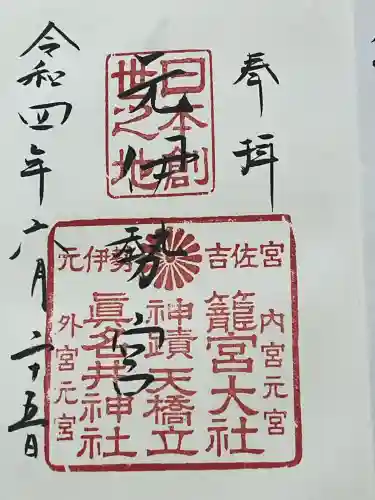 奉拝
日本創
世之地
元伊勢宮
吉佐宮
元伊勢
内宮元宮
籠宮大社
神蹟 天橋立
眞名井神社
外宮元宮
令和四年六月二十五日